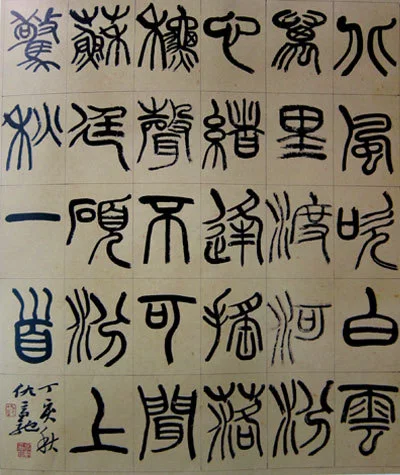 北風吹白雲
萬里渡河汾
心緒逢搖落
龝聲不可聞
蘇廷碩汾上
驚秋一首
丁亥秋
仇高馳